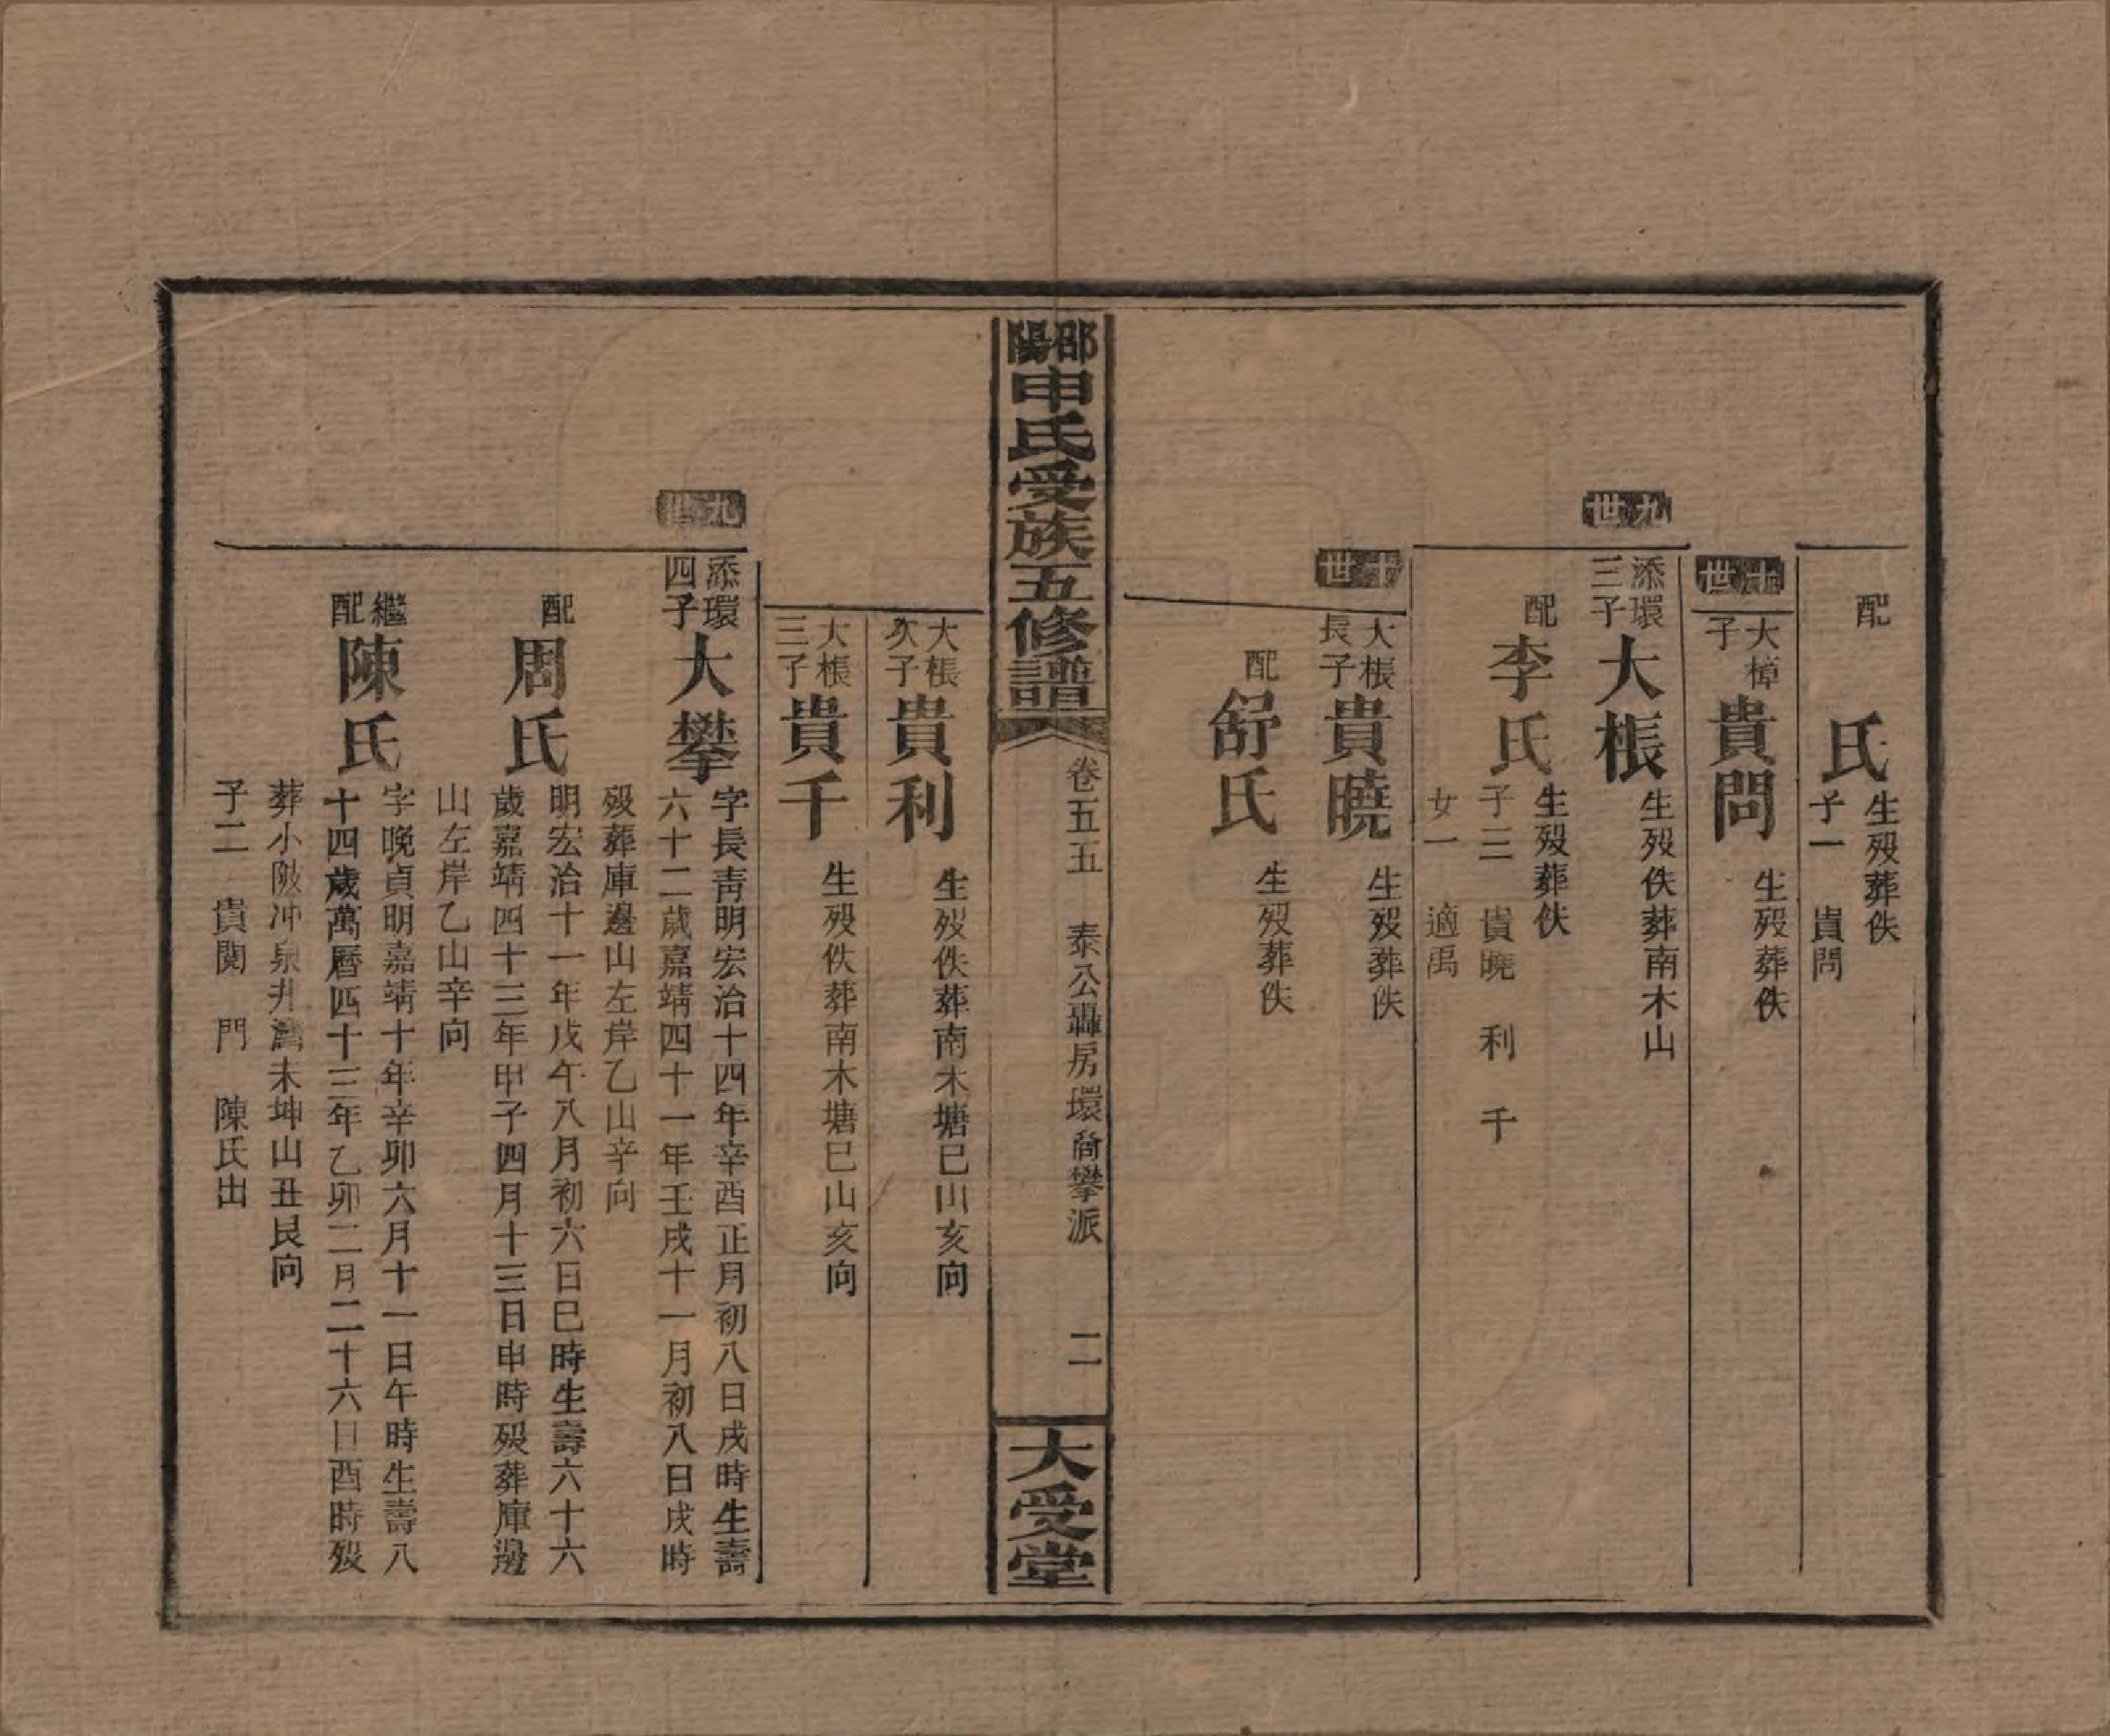 配
氏
生歿葬佚
子一 貴問
十世
大樟
子
貴問
生歿葬佚
九世
添環
三子
大棖
生歿佚葬南木山
配
李氏
生歿葬佚
子三 貴曉 利 千
女一 適禹
十世
大棖
長子
貴曉
生歿葬佚
配
舒氏
生歿葬佚
邵陽申氏受族五修譜
卷五五 泰公聶房環裔攀派 二
大受堂
大棖
次子
貴利
生歿佚葬南木塘巳山亥向
大棖
三子
貴千
生歿佚葬南木塘巳山亥向
九世
添環
四子
大攀
字長靑明宏治十四年辛酉正月初八日戌時生壽
六十二歲嘉靖四十一年壬戌十一月初八日戌時
歿葬庫邊山左岸乙山辛向
配
周氏
明宏治十一年戊午八月初六日巳時生壽六十六
歲嘉靖四十三年甲子四月十三日申時歿葬庫邊
山左岸乙山辛向
繼配
陳氏
字晚貞明嘉靖十年辛卯六月十一日午時生壽八
十四歲萬曆四十三年乙卯二月二十六日酉時歿
葬小陂冲泉井灣未坤山丑艮向
子二 貴閔 門 陳氏出